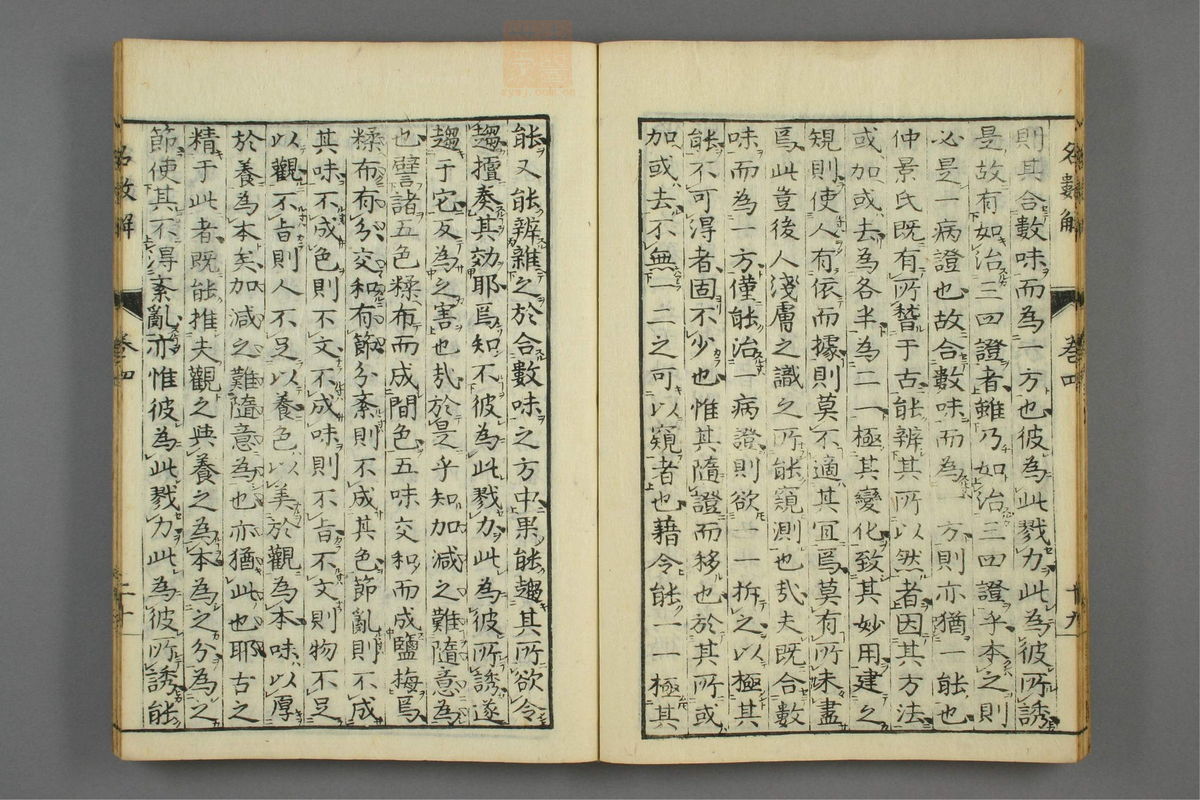 名數解
卷四
十九
則其合數味而為一方也彼為此戮力此為彼所誘
是故有如治三四證者雖乃如治三四證乎本之則
必是一病證也故合數味而為一方則亦猶一能也
仲景氏既有所瞽于古能辨其所以然者因其方法
或加或去為各半為二一極其變化致其妙用建之
規則使人有依而據則莫不適其宜焉莫有所未盡
焉此豈後人淺膚之識之所能窺測也哉夫既合數
味而為一方僅能治一病證則欲一一拆之以極其
能不可得者固不少也惟其隨證而移也於其所或
加或去不無一二之可以窺者也藉令能一一極其
能又能辨雜之於合數味之方中果能趨其所欲令
趨擅奏其効耶焉知不彼為此戮力此為彼所誘遂
趨于它反為之害也哉於是乎知加減之難隨意為
也譬諸五色糅布而成間色五味交和而成鹽梅焉
糅布有分交和有節分紊則不成其色節亂則不成
其味不成色則不文不成味則不旨不文則物不足
以觀不旨則人不足以養色以美於觀為本味以厚
於養為本矣加減之難隨意為也亦猶此也耶古之
精于此者既能推夫觀之與養之為本之分為之
節使其不得紊亂亦惟彼為此戮力此為彼所誘能
名數解
卷四
二十